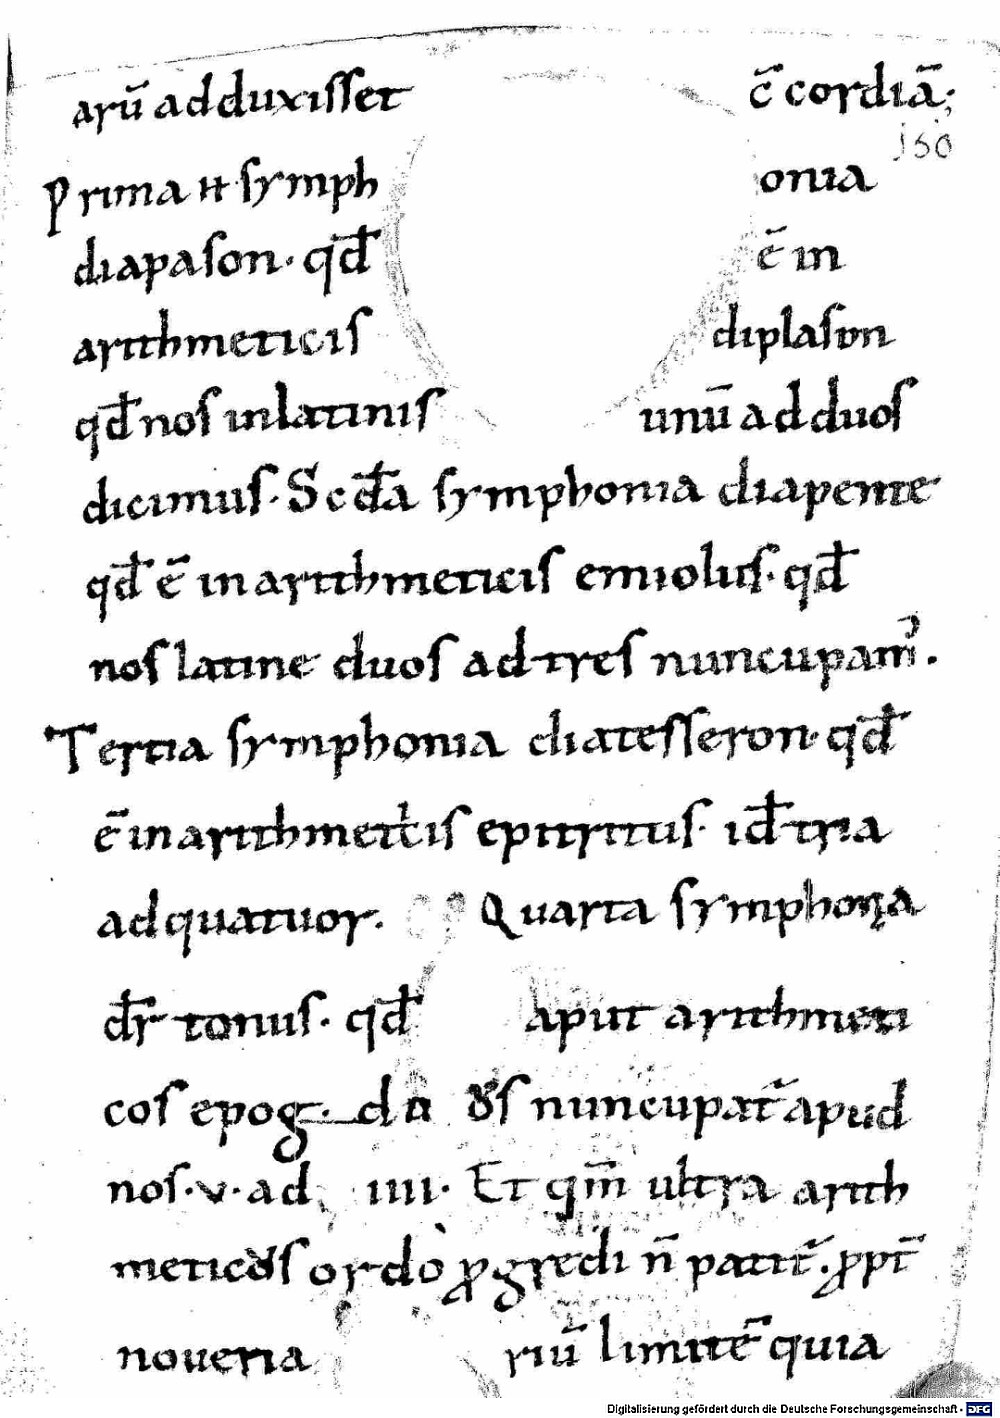 arū adduxisset c̄cordiā;
150
Prima H symphonia
diapason· qđ ē in
arithmeticis diplason
qđ nos inlatinis unū adduos
dicimus· Scđa symphonia diapente
qđ ē inarithmeticis emiolus· qđ
nos latine duos adtres nuncupam᾽.
Tertia symphonia diatesseron· qđ
ē inarithmeticis epitritus· iđ tria
adquatuor. Quarta symphonia
dr̄ tonus· qđ aput arithmeti
cos epog· nuncupat̄ apud
nos·v·ad IIII· Et qm̄ ultra arith
meticos ordo ꝓgredi n̄ patit̄. ꝓpt̄
nouena riū limitē quia
Digitalisierung gefördert durch die Deutsche Forschungsgemeinschaft - DFG